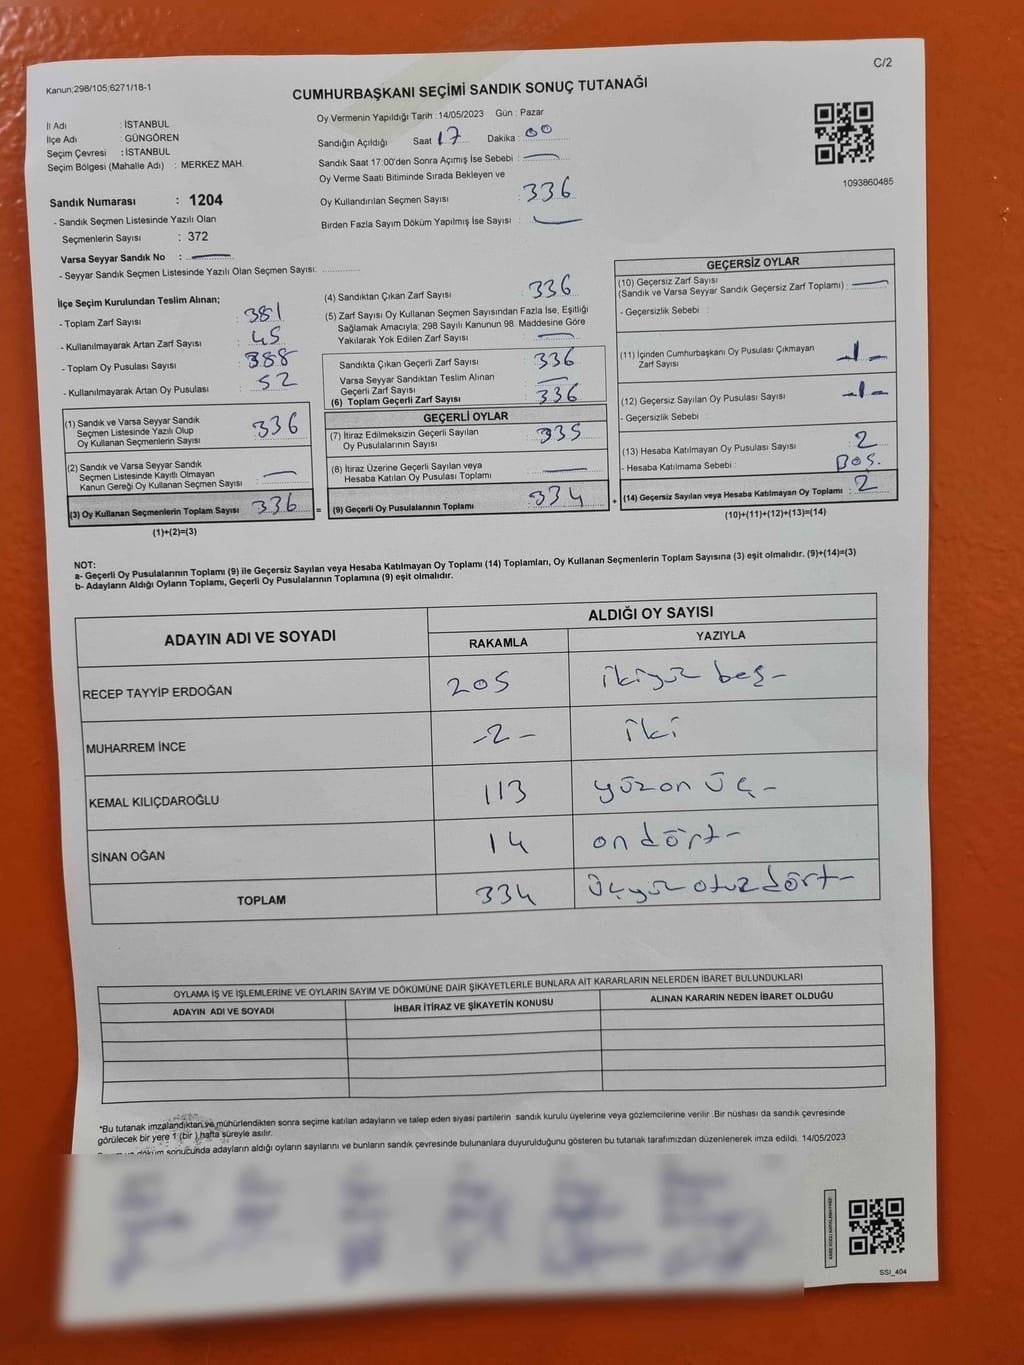 C/2
Kanun;298/105;6271/18-1
CUMHURBAŞKANI SEÇİMİ SANDIK SONUÇ TUTANAĞI
Oy Vermenin Yapıldığı Tarih : 14/05/2023 Gün : Pazar
İl Adı : İSTANBUL
İlçe Adı : GÜNGÖREN
Seçim Çevresi : İSTANBUL
Seçim Bölgesi (Mahalle Adı) : MERKEZ MAH.
Sandığın Açıldığı Saat 17 Dakika : 00
Sandık Saat 17:00'den Sonra Açımış İse Sebebi :
Oy Verme Saati Bitiminde Sırada Bekleyen ve
Oy Kullandırılan Seçmen Sayısı : 336
Birden Fazla Sayım Döküm Yapılmış İse Sayısı :
1093860485
Sandık Numarası : 1204
- Sandık Seçmen Listesinde Yazılı Olan
Seçmenlerin Sayısı : 372
Varsa Seyyar Sandık No :
- Seyyar Sandık Seçmen Listesinde Yazılı Olan Seçmen Sayısı:
İlçe Seçim Kurulundan Teslim Alınan;
- Toplam Zarf Sayısı : 381
- Kullanılmayarak Artan Zarf Sayısı : 45
- Toplam Oy Pusulası Sayısı : 388
- Kullanılmayarak Artan Oy Pusulası : 52
(1) Sandık ve Varsa Seyyar Sandık
Seçmen Listesinde Yazılı Olup
Oy Kullanan Seçmenlerin Sayısı : 336
(2) Sandık ve Varsa Seyyar Sandık
Seçmen Listesinde Kayıtlı Olmayan
Kanun Gereği Oy Kullanan Seçmen Sayısı :
(3) Oy Kullanan Seçmenlerin Toplam Sayısı : 336 =
(1)+(2)=(3)
(4) Sandıktan Çıkan Zarf Sayısı : 336
(5) Zarf Sayısı Oy Kullanan Seçmen Sayısından Fazla İse, Eşitliği
Sağlamak Amacıyla; 298 Sayılı Kanunun 98. Maddesine Göre
Yakılarak Yok Edilen Zarf Sayısı :
Sandıkta Çıkan Geçerli Zarf Sayısı : 336
Varsa Seyyar Sandıktan Teslim Alınan
Geçerli Zarf Sayısı :
(6) Toplam Geçerli Zarf Sayısı : 336
GEÇERLİ OYLAR
(7) İtiraz Edilmeksizin Geçerli Sayılan
Oy Pusulalarının Sayısı : 335
(8) İtiraz Üzerine Geçerli Sayılan veya
Hesaba Katılan Oy Pusulası Toplamı :
(9) Geçerli Oy Pusulalarının Toplamı : 334 +
GEÇERSİZ OYLAR
(10) Geçersiz Zarf Sayısı
(Sandık ve Varsa Seyyar Sandık Geçersiz Zarf Toplamı) :
- Geçersizlik Sebebi :
(11) İçinden Cumhurbaşkanı Oy Pusulası Çıkmayan
Zarf Sayısı : -1-
(12) Geçersiz Sayılan Oy Pusulası Sayısı : -1-
- Geçersizlik Sebebi :
(13) Hesaba Katılmayan Oy Pusulası Sayısı : 2
- Hesaba Katılmama Sebebi : BOŞ.
(14) Geçersiz Sayılan veya Hesaba Katılmayan Oy Toplamı : 2
(10)+(11)+(12)+(13)=(14)
NOT:
a- Geçerli Oy Pusulalarının Toplamı (9) ile Geçersiz Sayılan veya Hesaba Katılmayan Oy Toplamı (14) Toplamları, Oy Kullanan Seçmenlerin Toplam Sayısına (3) eşit olmalıdır. (9)+(14)=(3)
b- Adayların Aldığı Oyların Toplamı, Geçerli Oy Pusulalarının Toplamına (9) eşit olmalıdır.
ADAYIN ADI VE SOYADI ALDIĞI OY SAYISI
RAKAMLA YAZIYLA
RECEP TAYYİP ERDOĞAN 205 ikiyüz beş-
MUHARREM İNCE -2- iki
KEMAL KILIÇDAROĞLU 113 yüzon üç-
SİNAN OĞAN 14 on dört-
TOPLAM 334 üçyüz otuzdört-
OYLAMA İŞ VE İŞLEMLERİNE VE OYLARIN SAYIM VE DÖKÜMÜNE DAİR ŞİKAYETLERLE BUNLARA AİT KARARLARIN NELERDEN İBARET BULUNDUKLARI
ADAYIN ADI VE SOYADI İHBAR İTİRAZ VE ŞİKAYETİN KONUSU ALINAN KARARIN NEDEN İBARET OLDUĞU
*Bu tutanak imzalandıktan ve mühürlendikten sonra seçime katılan adayların ve talep eden siyasi partilerin sandık kurulu üyelerine veya gözlemcilerine verilir. Bir nüshası da sandık çevresinde
görülecek bir yere 1 (bir ) hafta süreyle asılır.
döküm sonucunda adayların aldığı oyların sayılarını ve bunların sandık çevresinde bulunanlara duyurulduğunu gösteren bu tutanak tarafımızdan düzenlenerek imza edildi. 14/05/2023
SSI_404